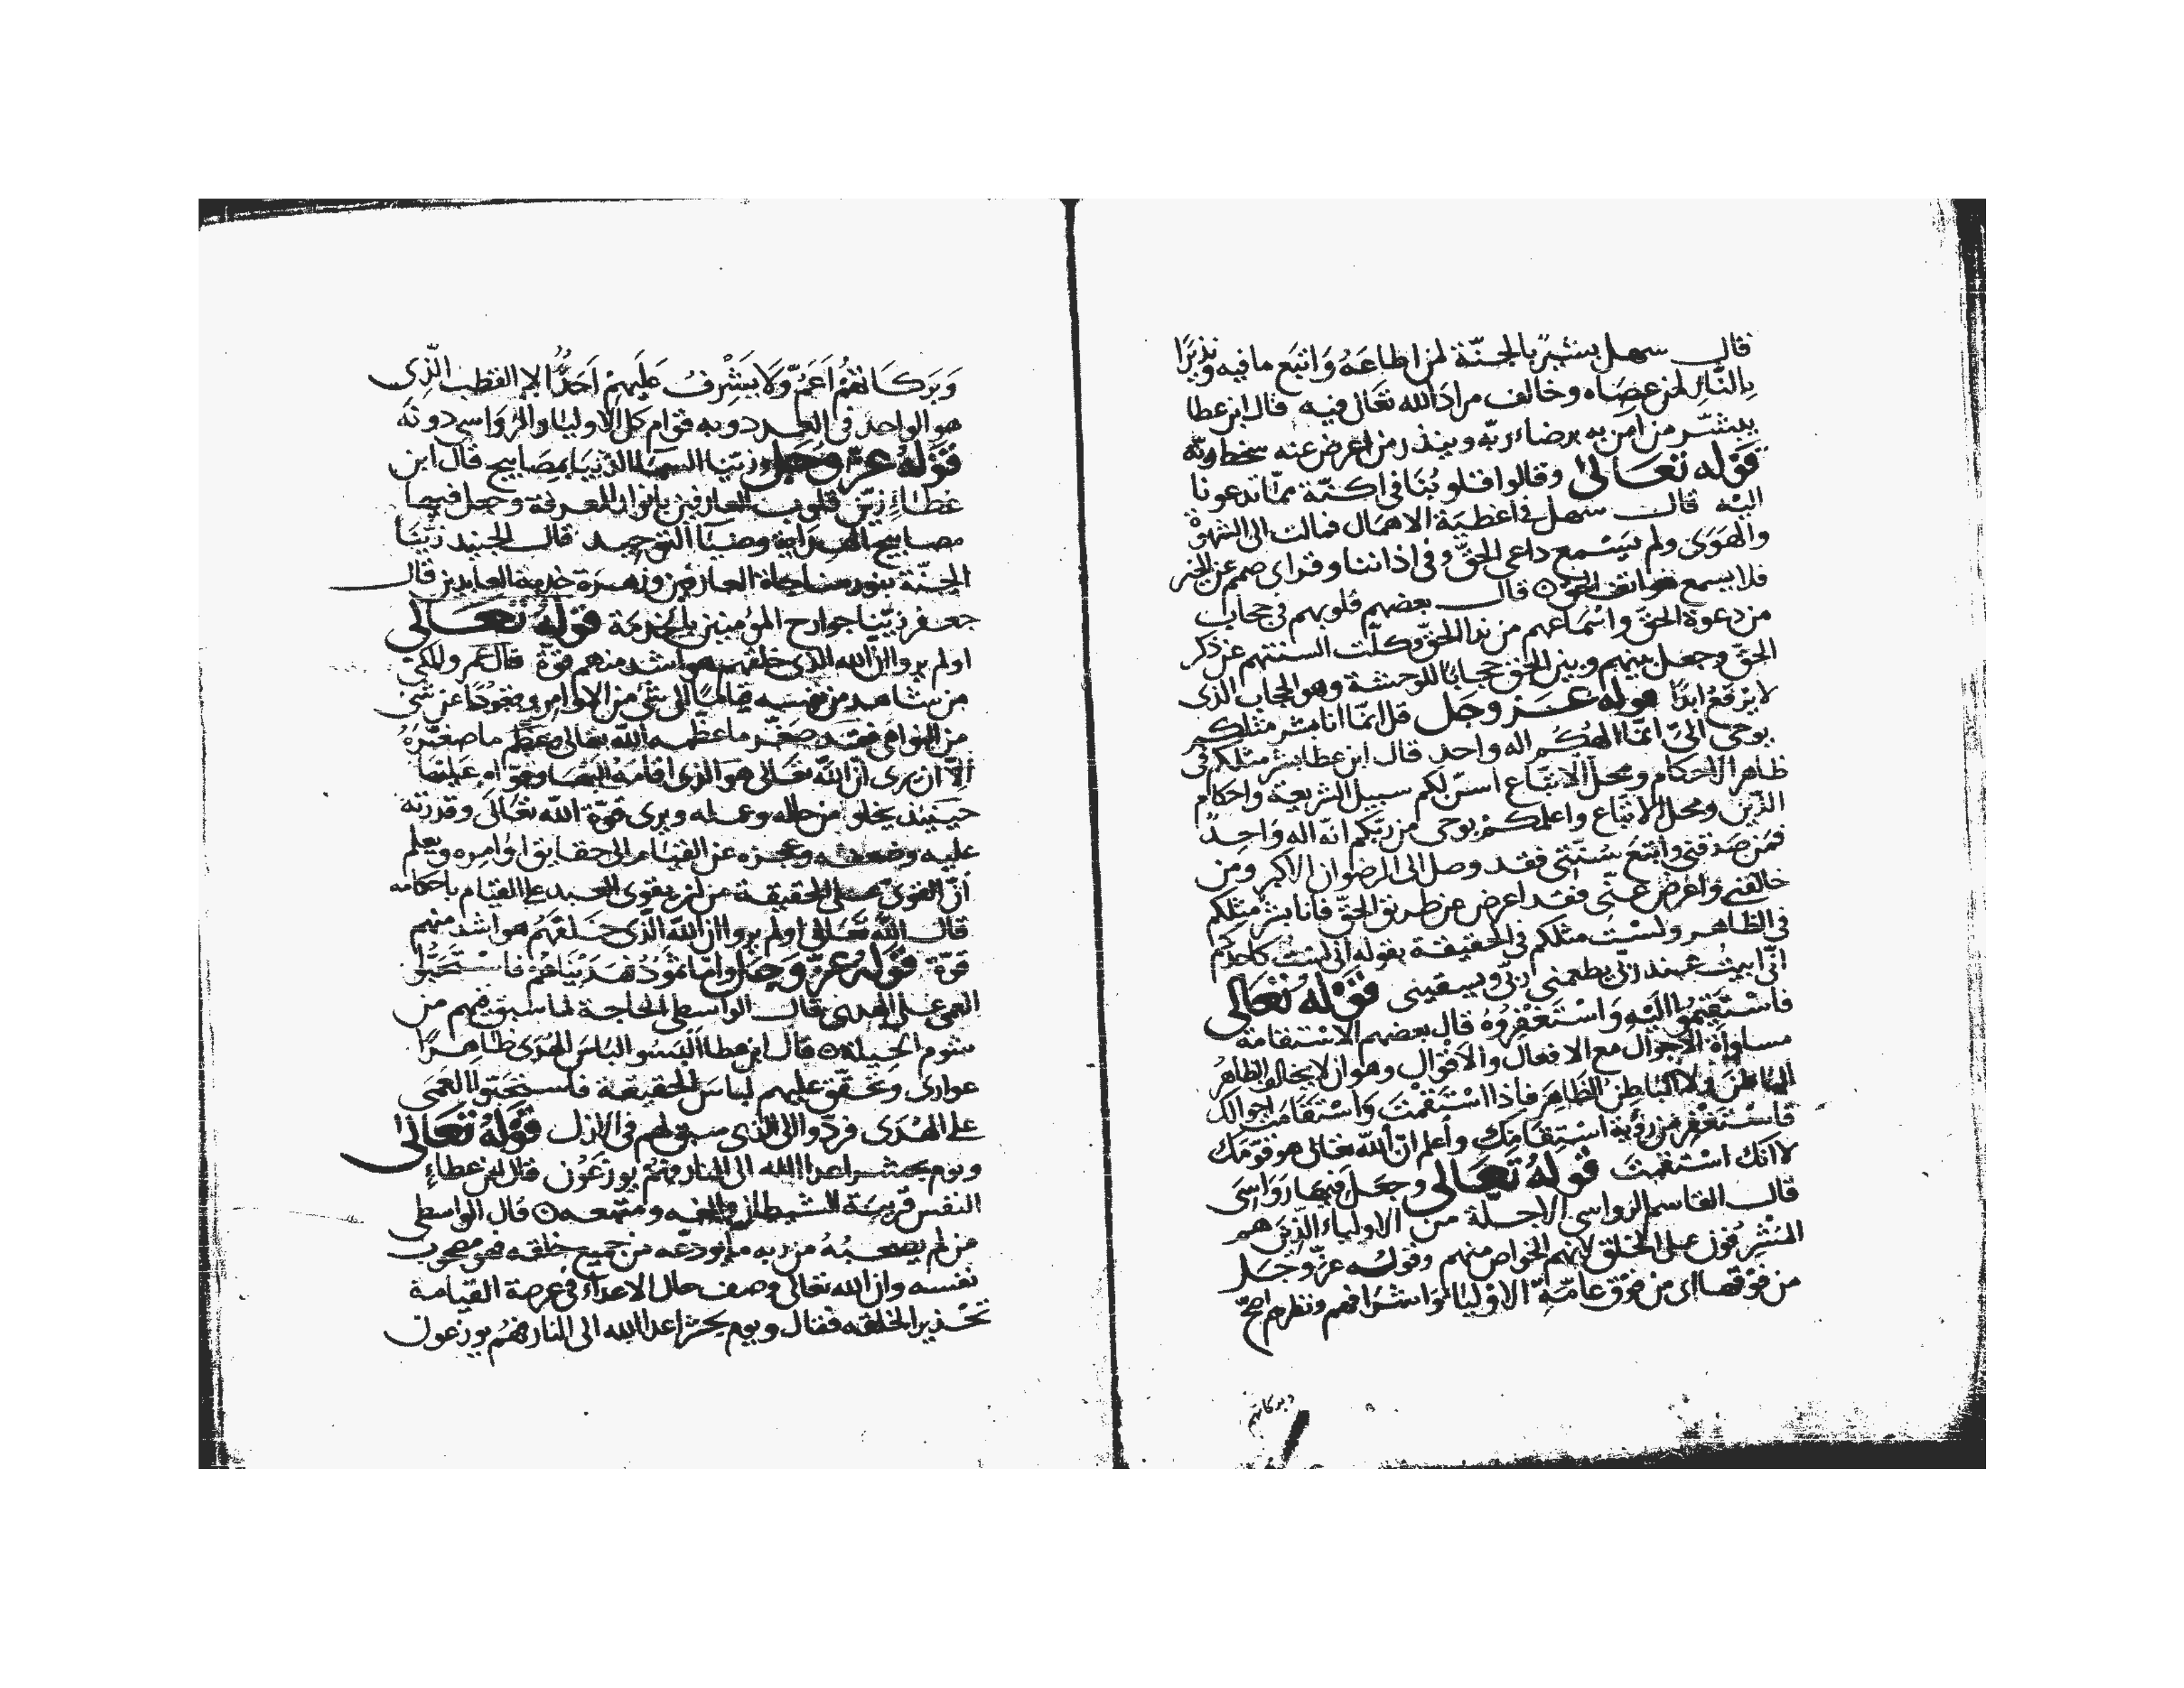 قال سهل بشير بالجنّة لمن اطاعَهُ وَاتبَع ما فيه ونذيرًا
بِالنَّارِ لمن عصَاه وخالف مرادَ الله تعَالى فيه قال ابن عطا
يبشّر من امن به برضاء ربّه وينذر من اعرض عنه سخط ربّه
قوَله تعَالىٰ وقالوا قلوبُنَا فى اكنّة ممّا تدعونا
اليْه قال سهل فى اغطيَة الاهمال فمالت الى الشهوْة
والهَوَى ولم يسْمع داعى الحقّ وفى اذاننا وقر اى صمم عن الخير
فلا يسمع هواتف الحق ٥ قال بعضهم قلوبهم فى حجاب
من دعوة الحقّ واسْماعهم من ندا الحقّ وكلّت السنتهم عن ذكر
الحقّ وجعل بينهم وبين الحق حجابًا للوحشة وهو الحجاب الذى
لا يرْفعُ ابدًا قوله عَزّ وجَل قل انمّا انا بشر مثلكم
يوحى الىّ انمّا الهُكم اله واحد قال ابن عطا بشر مثلكم فى
ظاهر الاحكام ومحلّ الاتبّاع اسنّ لكم سبيل الشريعة واحكام
الدّين ومحل الاتباع واعلمكمْ يوحى من ربّكم انّه اله وَاحِدً
فمَن صَدقنى واتبَع سُنّتى فقد وصل الى الرضوان الاكبر ومن
خالفنى واعرض عنّى فقد اعرض عن طريق الحقّ فانا بشر مثلكم
فى الظاهر ولسْت مثلكم فى الحقيقة بقوله انى لسْتُ كاحدكم
انّى ابيتُ عند ربّى يطعمنى ربّى ويسقينى قوْله تعَالى
فاسْتَقِيمُوا اليْهِ وَاسْتَغْفِرُوهُ قال بعضهم الاسْتقامة
مساواة الاحوال مع الافعال والاقْوال وهو ان لا يخالف الظاهر
البَاطنَ ولا البَاطِنُ الظَاهِرَ فاذا اسْتقمْت وَاسْتقامت احوالك
فاسْتغْفر من رؤية استقامتك وأعلم انّ الله تعالى هو قوّمك
لا انك اسْتقمْت قوْلهُ تعَالى وجعَل فيهَا رَوَاسَىَ
قال القاسم الرواسى الاجلّة من الاولياء الذّين هم
المُشْرِفُون على الخلْق لانهم الخواص منهم وقوله عزّ وجَل
من فوْقهَا اى من فوْق عامّة الاوْليَا لاشرافهم ونظرهم اصَحّ
وبركاتهم
وَبَرَكَاتهُمْ اَعَمّ وَلَا يشْرِفُ عَلَيهمْ اَحَدٌ الا القطب الّذى
هو الواحد فى العدد وبه قوَام كل الاوليَا والرَوَاسى دونَه
قوْلهُ عزّ وَجَل وزيّنا السمَاء الدّنيَا بمصَابيح قال ابن
عَطَاءِ زيّن قلوب العارفين بانوار المعرفة وجعل فيها
مصابيح الهدَاية وضيَآ التوحيد قال الجنيد زيّنا
الجنّة بنور مناجاة العارفين وزهرة خدمة العابدين قال
جعفر زيّنا جوارح المؤمنين بالخدمَة قوْلهُ تعَالى
اولم يروا انّ الله الذى خلقهم هو اشد منهم قوّة قال عَمرو المكى
من شاهد من نفسه قيَامًا الى شئ من الاوامر وقعُودًا عن شئ
من النواهى فقد صغّر ما عظّمه الله تعالى وعظّم ما صغّرهُ
الّا ان يرى انّ الله تعَالى هو الذى اقامَه اليهَا وقوّاه عَليْها
حينئذ يخلو من حاله وعمله ويرى قوّة الله تعَالى وقدرته
عليه وضعفه وعجزه عن القيَام الى حقايق اوامره ويعلم
أنّ القوىّ على الحقيقة من لم يقوى العبد على القيَام باحكامه
قال الله تعَالى اولم يروا انّ الله الّذى خَلقهُم هو اشد منهم
قوّة قوْلهُ عَزّ وَجَل وامّا ثمُودُ فهَدَيْنَاهُمْ فاسْتَحَبّوا
العمى على الهدى قال الواسطى الحاجة لما سبق لهم من
شوم الجبلة ٥ قال ابن عطا اَلبَسُوا لبَاسَ الهُدَى ظاهِرًا
عوارى وتحقّق عليهم لبَاس الحقيقة فاسْتحَبّوا العمَى
على الهُدَى فردّوا الى الذى سبق لهم فى الازل قوْلهُ تعَالى
ويوم يحشر اعدا الله الى النار فهُمْ يوزعُون قال ابن عطاءِ
النفس قرينَة الشيطان والفه ومتبعه ٥ قال الواسطى
من لم يصحبُهُ من ربه ما يودعه من جميع خلقه فهو مصحوب
نفسه وان الله تعَالى وصف حال الاعدَآء فى عرصة القيَامة
تَحْذيرا لخلقه فقال ويوم يحشر اعدا الله الى النار فهُم يوزعون